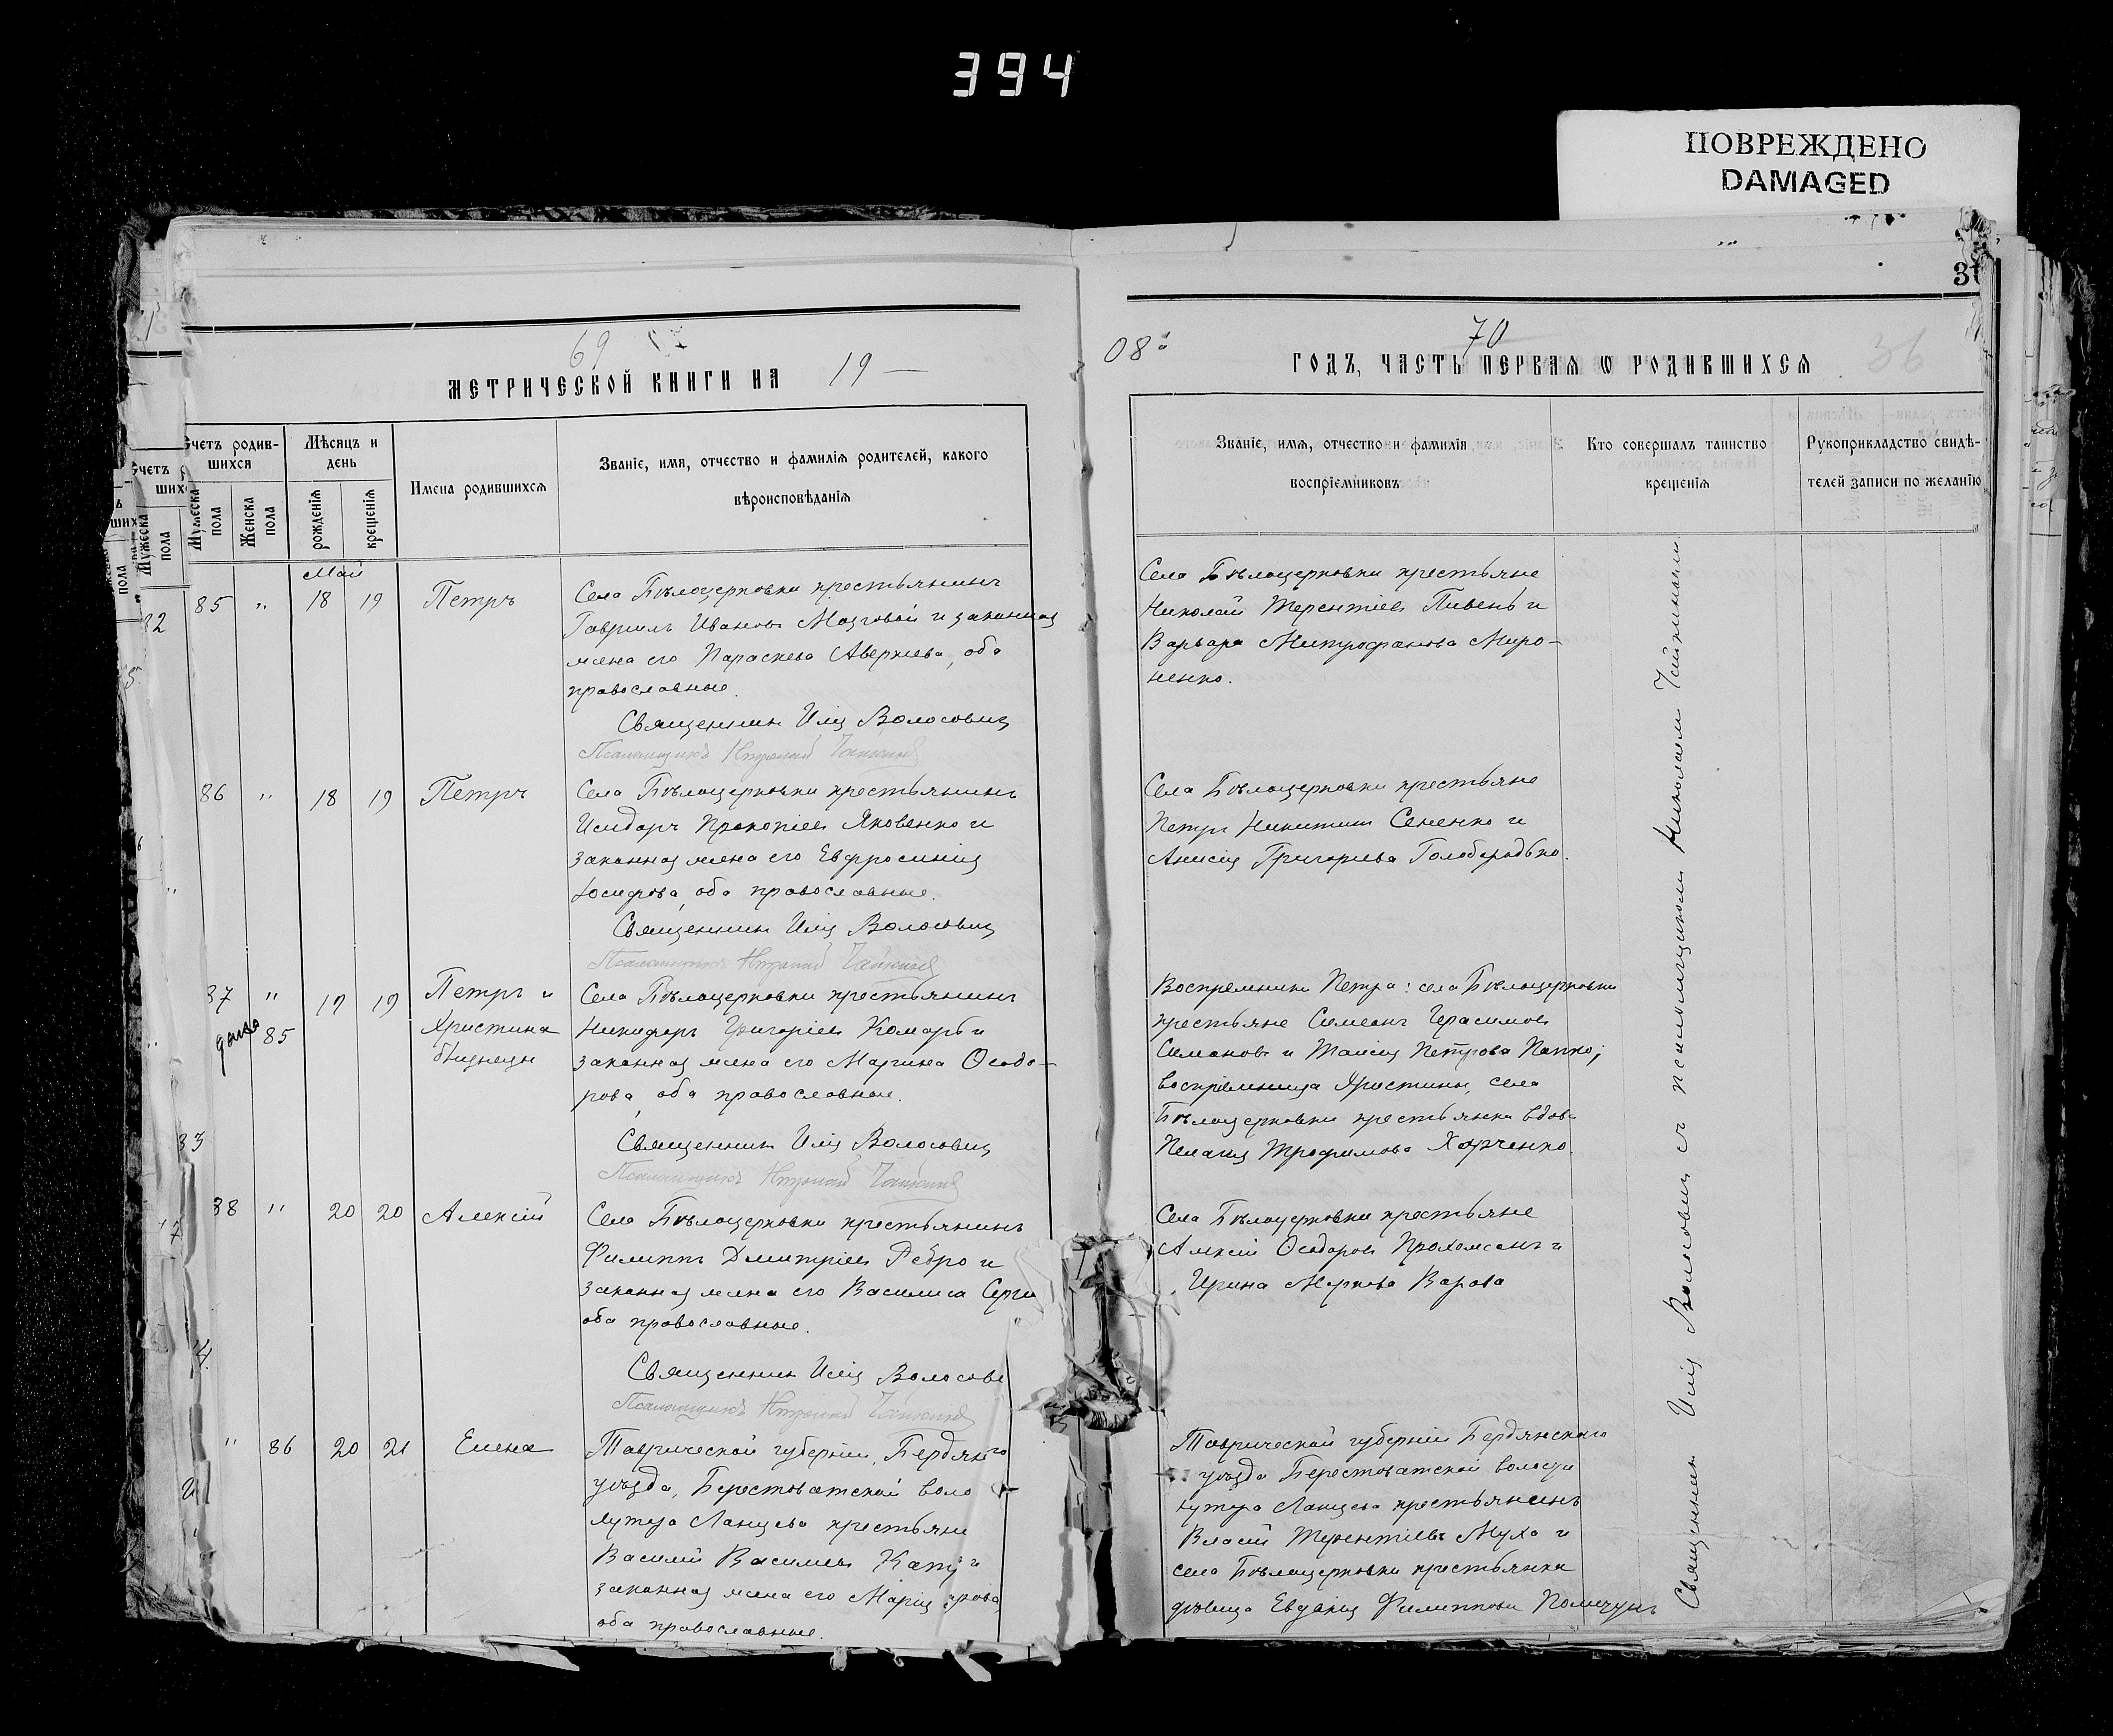 394
ПОВРЕЖДЕНО
DAMAGED
69
МЕТРИЧЕСКОЙ КНИГИ НА 19
Счетъ родив-
шихся
Мужеска пола
Женска пола
Мѣсяцъ и
день
рожденія
крещенія
Имена родившихся
Званіе, имя, отчество и фамилія родителей, какого
вѣроисповѣданія
Май
85 " 18 19 Петръ
Села Бѣлоцерковки крестьянинъ
Гавріилъ Ивановъ Мозговой и законная
жена его Параскева Аверкіева, оба
православные.
Священникъ Илія Волосовичъ
Псаломщикъ Николай Чайкинъ
86 " 18 19 Петръ
Села Бѣлоцерковки крестьянинъ
Исидоръ Прокопіевъ Яковенко и
законная жена его Евфросинія
Іосифова, оба православные.
Священникъ Илія Волосовичъ
Псаломщикъ Николай Чайкинъ
87 " 19 19 Петръ и
двойня 85 Христина
близнецы
Села Бѣлоцерковки крестьянинъ
Никифоръ Григоріевъ Комаръ и
законная жена его Марина Ѳеодо-
рова, оба православные.
Священникъ Илія Волосовичъ
Псаломщикъ Николай Чайкинъ
88 " 20 20 Алексій
Села Бѣлоцерковки крестьянинъ
Филиппъ Дмитріевъ Ребро и
законная жена его Василиса Серги
оба православные.
Священникъ Илія Волосови
Псаломщикъ Николай Чайкинъ
" 86 20 21 Елена
Таврической губерніи, Бердян го
уѣзда, Берестоватской воло
хутора Ланцева крестьяни
Василій Васильевъ и
законная жена его Марія
оба православные.
08 70
ГОДЪ, ЧАСТЬ ПЕРВАЯ Ѡ РОДИВШИХСЯ
36
Званіе, имя, отчество и фамилія
воспріемниковъ
Кто совершалъ таинство
крещенія
Рукоприкладство свидѣ-
телей записи по желанію
Села Бѣлоцерковки крестьяне
Николай Терентіевъ Пивень и
Варвара Митрофанова Миро-
ненко.
Села Бѣлоцерковки крестьяне
Петръ Никитинъ Сененко и
Анисія Григорьева Голобородько.
Воспріемники Петра: села Бѣлоцерковки
крестьяне Симеонъ Герасимовъ
Симоновъ и Таисія Петрова Папко;
воспріемница Христины, села
Бѣлоцерковки крестьянка вдова
Пелагія Трофимова Харченко.
Села Бѣлоцерковки крестьяне
Алексій Ѳеодоровъ и
Ирина Маркова Варава
Таврической губерніи Бердянскаго
уѣзда Берестоватской волости
хутора Ланцева крестьянинъ
Власій Терентіевъ Муха и
села Бѣлоцерковки крестьянка
дѣвица Евдокія Филиппова
Священникъ Илія Волосовичъ съ псаломщикомъ Николаемъ Чайкинымъ